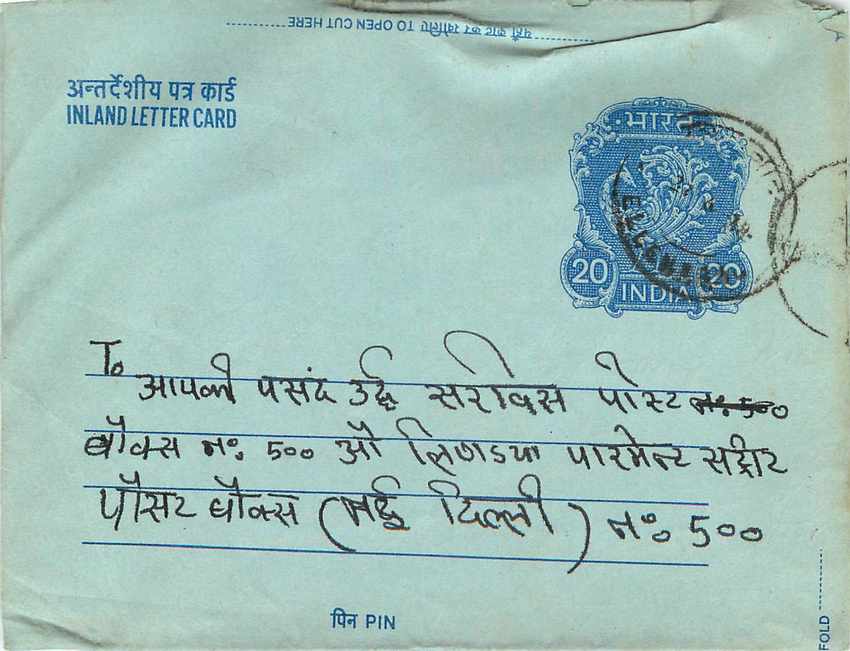 यहाँ काट कर खोलिए TO OPEN CUT HERE
अन्तर्देशीय पत्र कार्ड
INLAND LETTER CARD
भारत
20 INDIA 20
To
आपकी पसंद उर्दू सरीवस पोस्ट न॰ 500
बौक्स न॰ 500 औ लिणडया पारमेन्ट सट्रीट
पौसट बौक्स (नई दिल्ली) न॰ 500
पिन PIN
FOLD